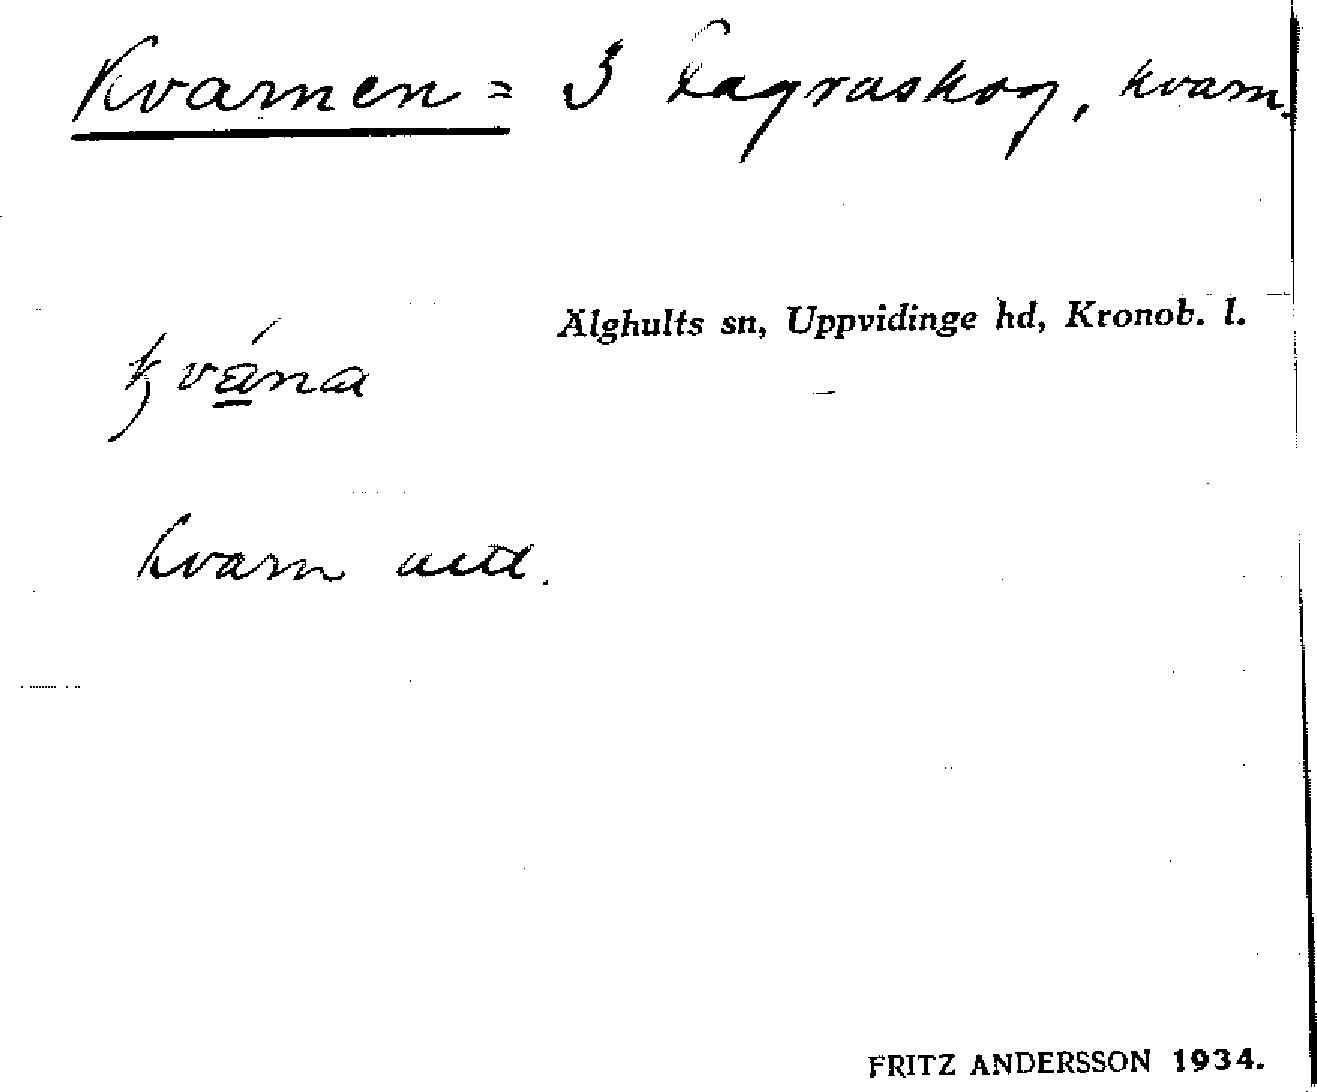 Kvarnen = 3 Fagraskog, kvarn.
Älghults sn, Uppvidinge hd, Kronob. l.
kvána
kvarn
FRITZ ANDERSSON 1934.